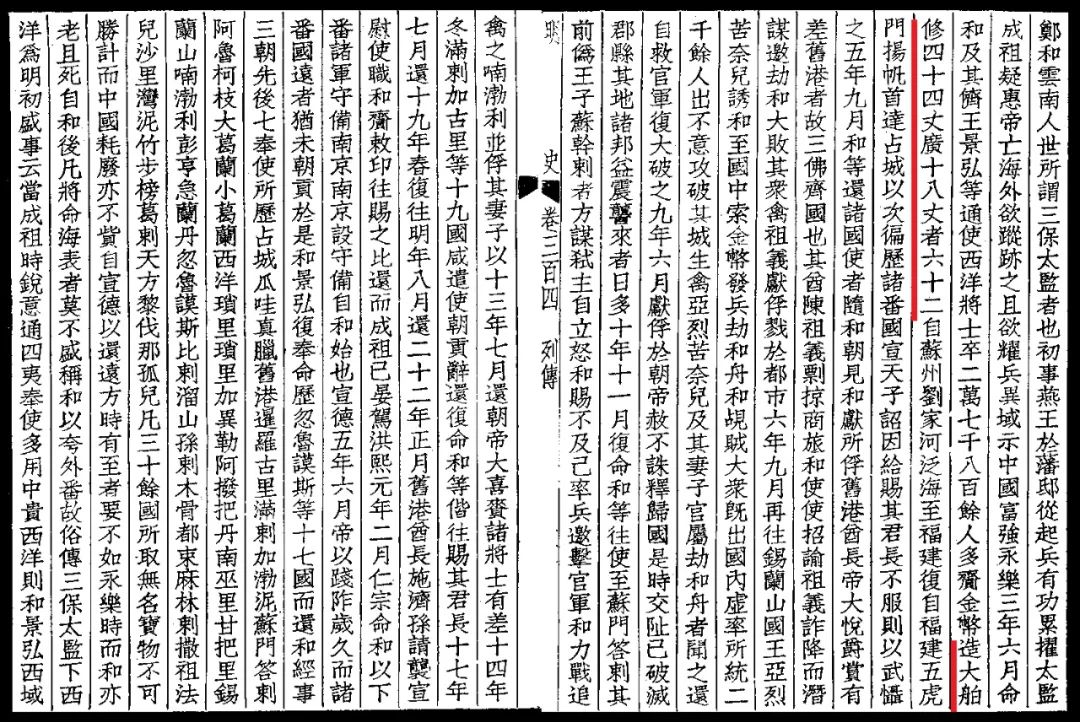 鄭和雲南人世所謂三保太監者也初事燕王於藩邸從起兵有功累擢太監
成祖疑惠帝亡海外欲蹤跡之且欲耀兵異域示中國富強永樂三年六月命
和及其儕王景弘等通使西洋將士卒二萬七千八百餘人多齎金幣造大舶
修四十四丈廣十八丈者六十二自蘇州劉家河泛海至福建復自福建五虎
門揚帆首達占城以次徧歷諸番國宣天子詔因給賜其君長不服則以武懾
之五年九月和等還諸國使者隨和朝見和獻所俘舊港酋長帝大悅爵賞有
差舊港者故三佛齊國也其酋陳祖義剽掠商旅和使使招諭祖義詐降而潛
謀邀劫和大敗其衆禽祖義獻俘戮於都市六年九月再往錫蘭山國王亞烈
苦奈兒誘和至國中索金幣發兵劫和舟和覘賊大衆既出國內虛率所統二
千餘人出不意攻破其城生禽亞烈苦奈兒及其妻子官屬劫和舟者聞之還
自救官軍復大破之九年六月獻俘於朝帝赦不誅釋歸國是時交阯已破滅
郡縣其地諸邦益震讋來者日多十年十一月復命和等往使至蘇門答剌其
前僞王子蘇幹剌者方謀弒主自立怒和賜不及己率兵邀擊官軍和力戰追
史 卷三百四 列傳
禽之喃渤利並俘其妻子以十三年七月還朝帝大喜賚諸將士有差十四年
冬滿剌加古里等十九國咸遣使朝貢辭還復命和等偕往賜其君長十七年
七月還十九年春復往明年八月還二十二年正月舊港酋長施濟孫請襲宣
慰使職和齎敕印往賜之比還而成祖已晏駕洪熙元年二月仁宗命和以下
番諸軍守備南京南京設守備自和始也宣德五年六月帝以踐阼歲久而諸
番國遠者猶未朝貢於是和景弘復奉命歷忽魯謨斯等十七國而還和經事
三朝先後七奉使所歷占城瓜哇真臘舊港暹羅古里滿剌加渤泥蘇門答剌
阿魯柯枝大葛蘭小葛蘭西洋瑣里瑣里加異勒阿撥把丹南巫里甘把里錫
蘭山喃渤利彭亨急蘭丹忽魯謨斯比剌溜山孫剌木骨都束麻林剌撒祖法
兒沙里灣泥竹步榜葛剌天方黎伐那孤兒凡三十餘國所取無名寶物不可
勝計而中國耗廢亦不貲自宣德以還遠方時有至者要不如永樂時而和亦
老且死自和後凡將命海表者莫不盛稱和以夸外番故俗傳三保太監下西
洋爲明初盛事云當成祖時銳意通四夷奉使多用中貴西洋則和景弘西域